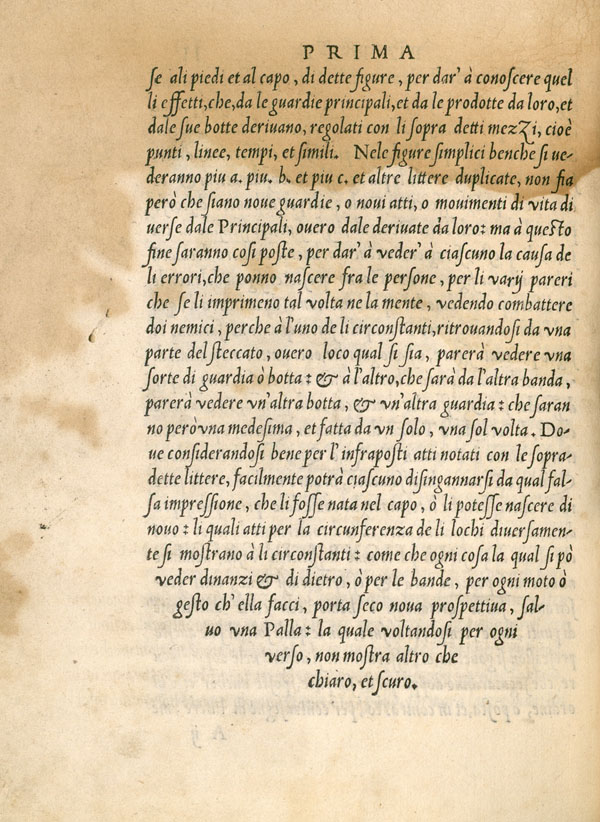 PRIMA
se ali piedi et al capo, di dette figure, per dar' à conoscere quel
li effetti, che, da le guardie principali, et da le prodotte da loro, et
dale sue botte deriuano, regolati con li sopra detti mezzi, cioè
punti, linee, tempi, et simili. Nele figure simplici benche si ue-
deranno piu a. piu. b. et piu c. et altre littere duplicate, non fia
però che siano noue guardie, o noui atti, o mouimenti di vita di
uerse dale Principali, ouero dale deriuate da loro: ma à questo
fine saranno cosi poste, per dar' à veder' à ciascuno la causa de
li errori, che ponno nascere fra le persone, per li varij pareri
che se li imprimeno tal volta ne la mente, vedendo combattere
doi nemici, perche à l'uno de li circonstanti, ritrouandosi da vna
parte del steccato, ouero loco qual si sia, parerà vedere vna
sorte di guardia ò botta: & à l'altro, che sarà da l'altra banda,
parerà vedere vn'altra botta, & vn'altra guardia: che saran
no però vna medesima, et fatta da vn solo, vna sol volta. Do-
ue considerandosi bene per l'infraposti atti notati con le sopra-
dette littere, facilmente potrà ciascuno disingannarsi da qual fal-
sa impressione, che li fosse nata nel capo, ò li potesse nascere di
nouo: li quali atti per la circunferenza de li lochi diuersamen-
te si mostrano à li circonstanti: come che ogni cosa la qual si pò
veder dinanzi & di dietro, ò per le bande, per ogni moto ò
gesto ch' ella facci, porta seco noua prospettiua, sal-
uo vna Palla: la quale voltandosi per ogni
verso, non mostra altro che
chiaro, et scuro.